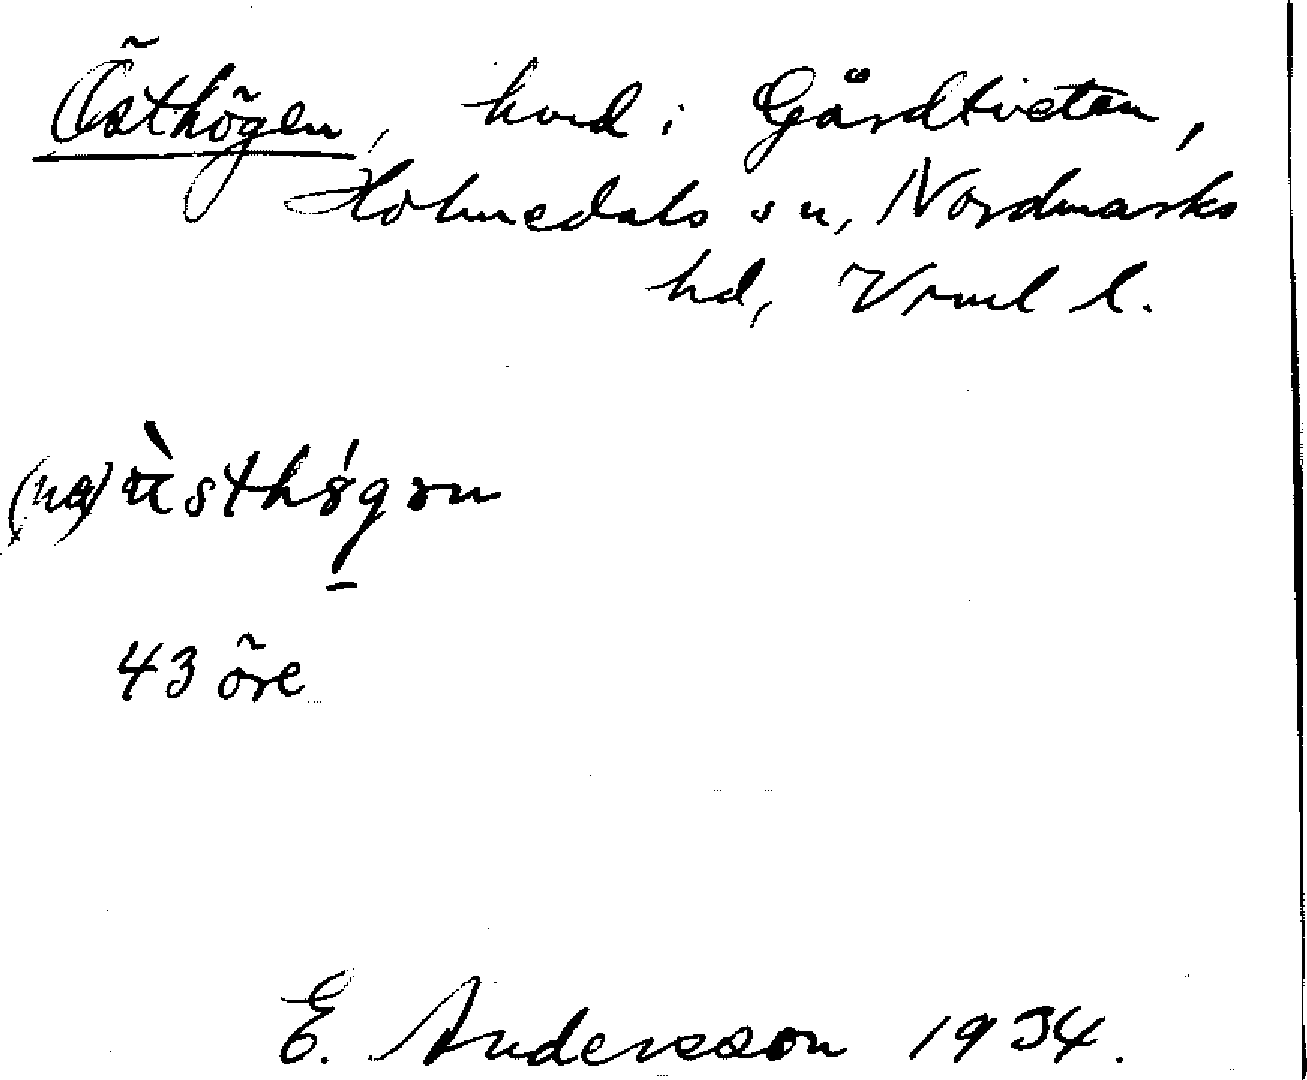 Östhögen, hmd i Gårdtveten,
Holmedals sn, Nordmarks
hd, Vrml l.
(na) ùsthø̀gən
43 öre
E. Andersson 1934.